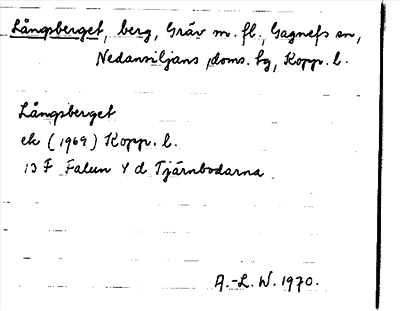 Långsberget, berg, Gräv m. fl., Gagnefs sn,
Nedansiljans doms. tg, Kopp. l.
Långsberget
ek (1969) Kopp. l.
13 F Falun Y d Tjärnbodarna
A.-L. W. 1970.